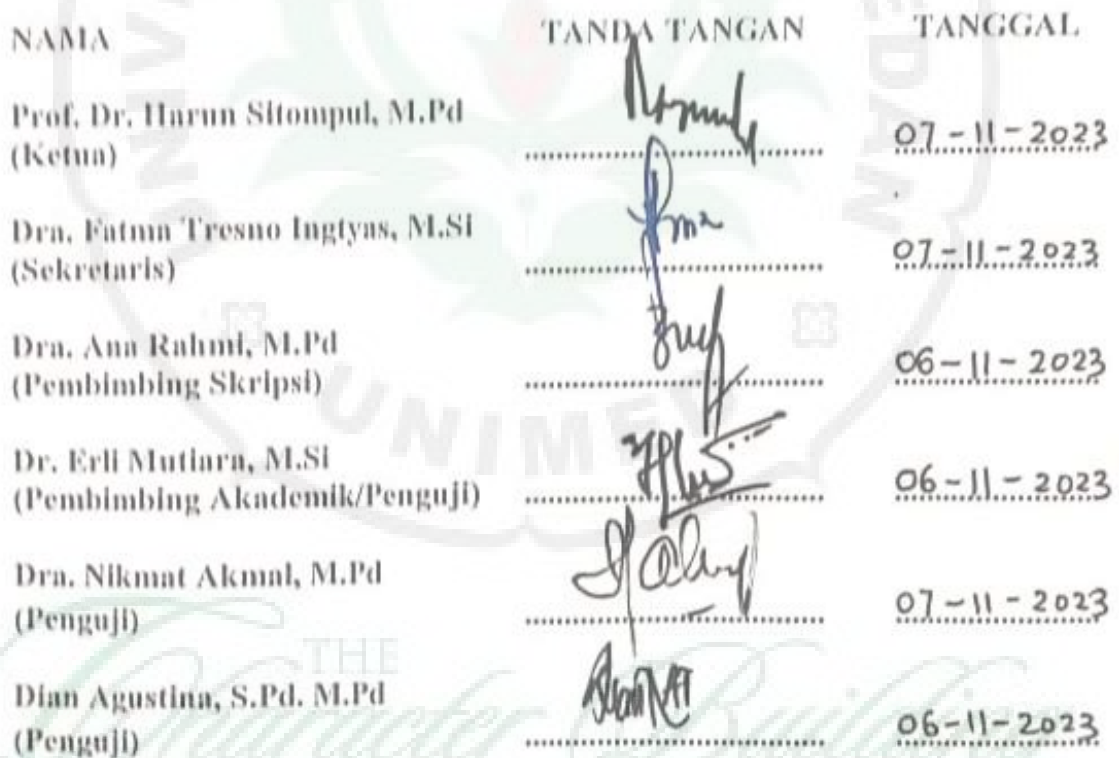 NAMA TANDA TANGAN TANGGAL
Prof. Dr. Harun Sitompul, M.Pd
(Ketua) 07-11-2023
Dra. Fatma Tresno Ingtyas, M.Si
(Sekretaris) 07-11-2023
Dra. Ana Rahmi, M.Pd
(Pembimbing Skripsi) 06-11-2023
Dr. Erli Mutiara, M.Si
(Pembimbing Akademik/Penguji) 06-11-2023
Dra. Nikmat Akmal, M.Pd
(Penguji) 07-11-2023
Dian Agustina, S.Pd. M.Pd
(Penguji) 06-11-2023
UNIMED
THE
Character Building